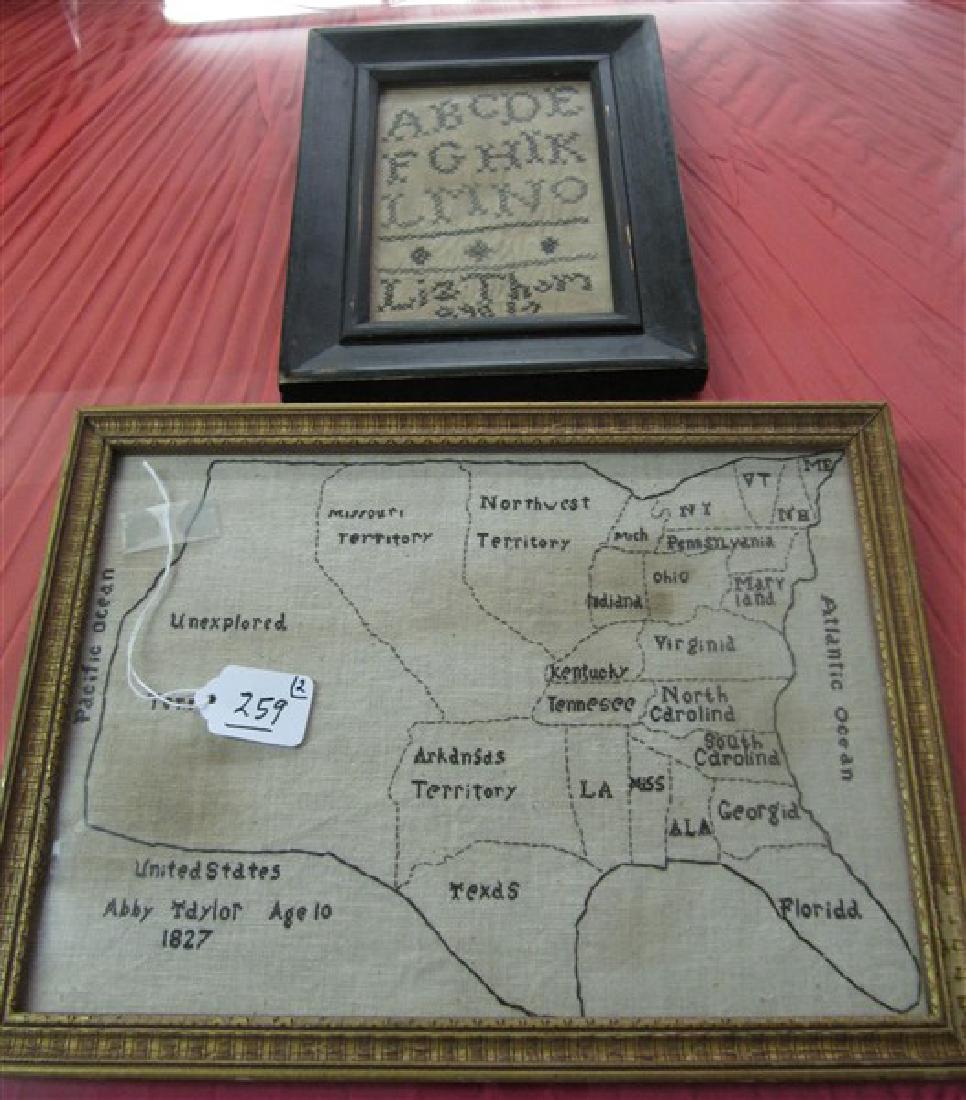 ABCDE
FGHIK
LMNO
Liz Thom
Missouri
Territory
Northwest
Territory
Mich
NY
VT
NH
ME
Pennsylvania
Ohio
Indiana
Mary
land
Virginia
Kentucky
Tennesee
North
Carolina
South
Carolina
Georgia
Arkansas
Territory
LA
Miss
ALA
Texas
Florida
Unexplored
Pacific Ocean
Atlantic Ocean
259
(2
United States
Abby Taylor Age 10
1827